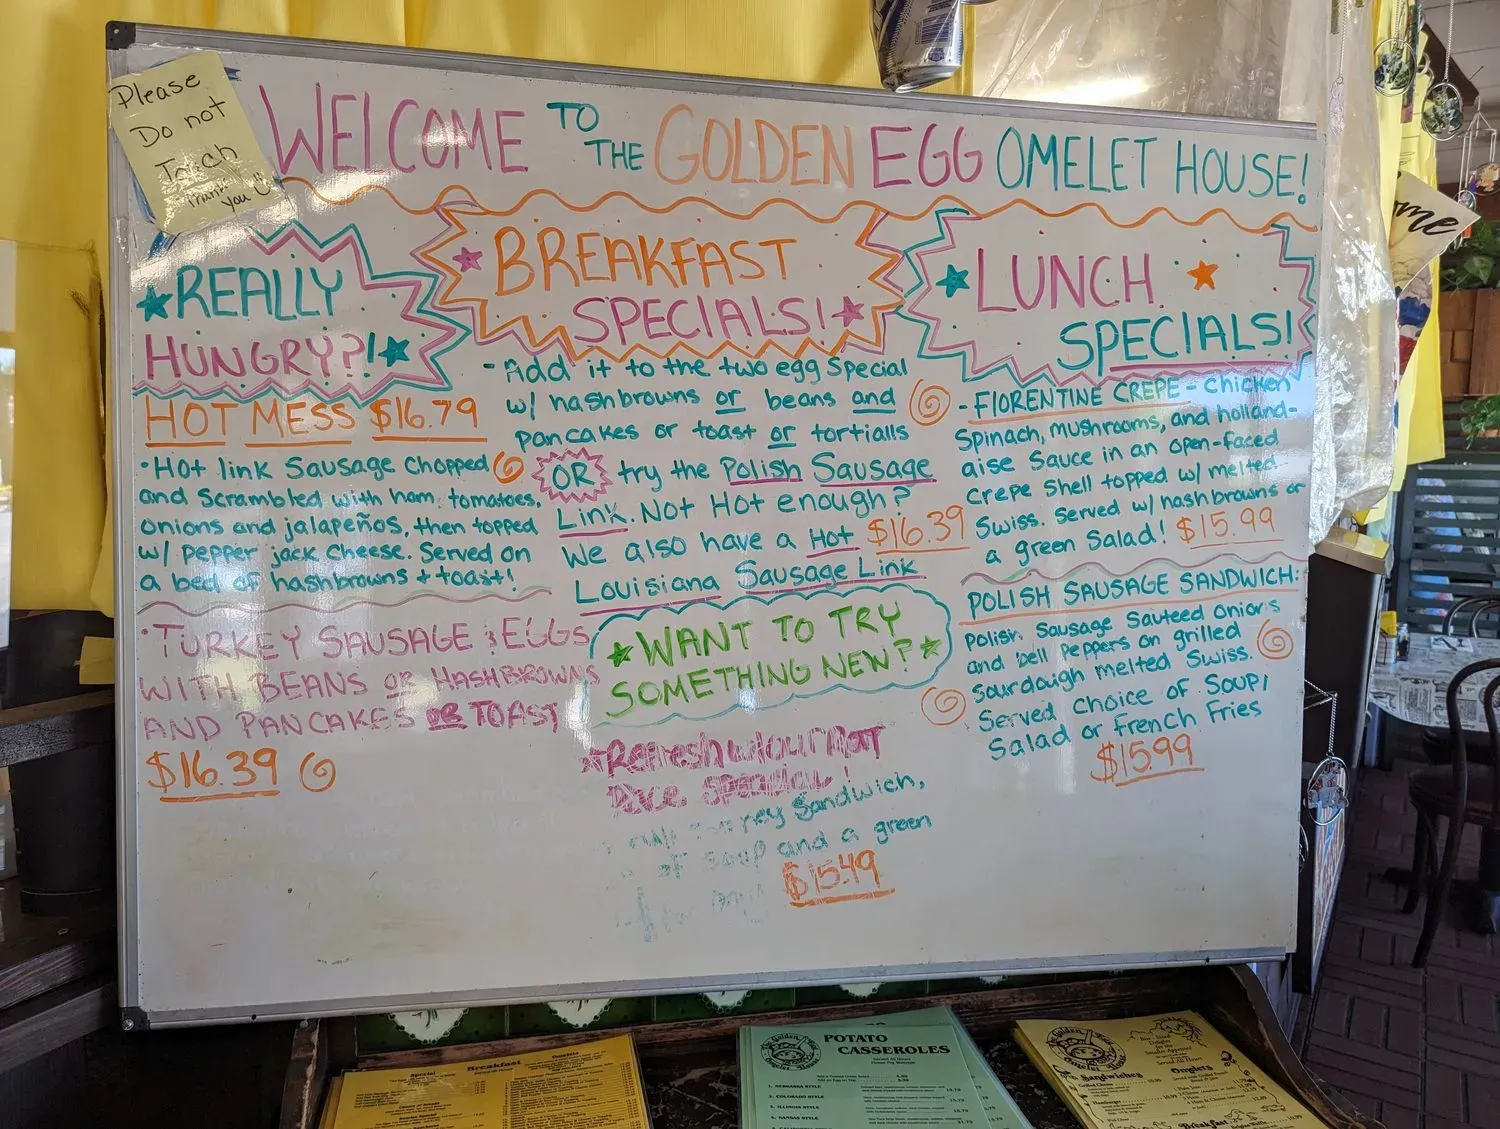 Please
Do not
Touch
Thank
you
WELCOME TO THE GOLDEN EGG OMELET HOUSE!
REALLY
HUNGRY?!
HOT MESS $16.79
•Hot link Sausage Chopped
and Scrambled with ham, tomatoes,
onions and jalapeños, then topped
w/ Pepper jack cheese. Served on
a bed of hashbrowns + toast!
•TURKEY SAUSAGE & EGGS
WITH BEANS OR HASHBROWNS
AND PANCAKES OR TOAST
$16.39
BREAKFAST
SPECIALS!
-Add it to the two egg Special
w/ hashbrowns or beans and
pancakes or toast or tortialls
OR try the Polish Sausage
Link. Not Hot enough?
We also have a Hot $16.39
Louisiana Sausage Link
WANT TO TRY
SOMETHING NEW?
Refresh w/our
special!
Sandwich,
of soup and a green
$15.49
LUNCH
SPECIALS!
-FlORENTINE CREPE - Chicken
Spinach, mushrooms, and holland-
aise Sauce in an open-faced
crepe Shell topped w/ melted
Swiss. Served w/ hashbrowns or
a green Salad! $15.99
POLISH SAUSAGE SANDWICH:
Polish Sausage Sauteed Onions
and Bell Peppers on grilled
Sourdough melted Swiss.
Served Choice of Soup,
Salad or French Fries
$15.99
me
Breakfast
Special
Omelets
POTATO
CASSEROLES
1. NEBRASKA STYLE
2. COLORADO STYLE
3. ILLINOIS STYLE
4. KANSAS STYLE
Golden
Omelet House
Sandwiches
Omelets
Breakfast